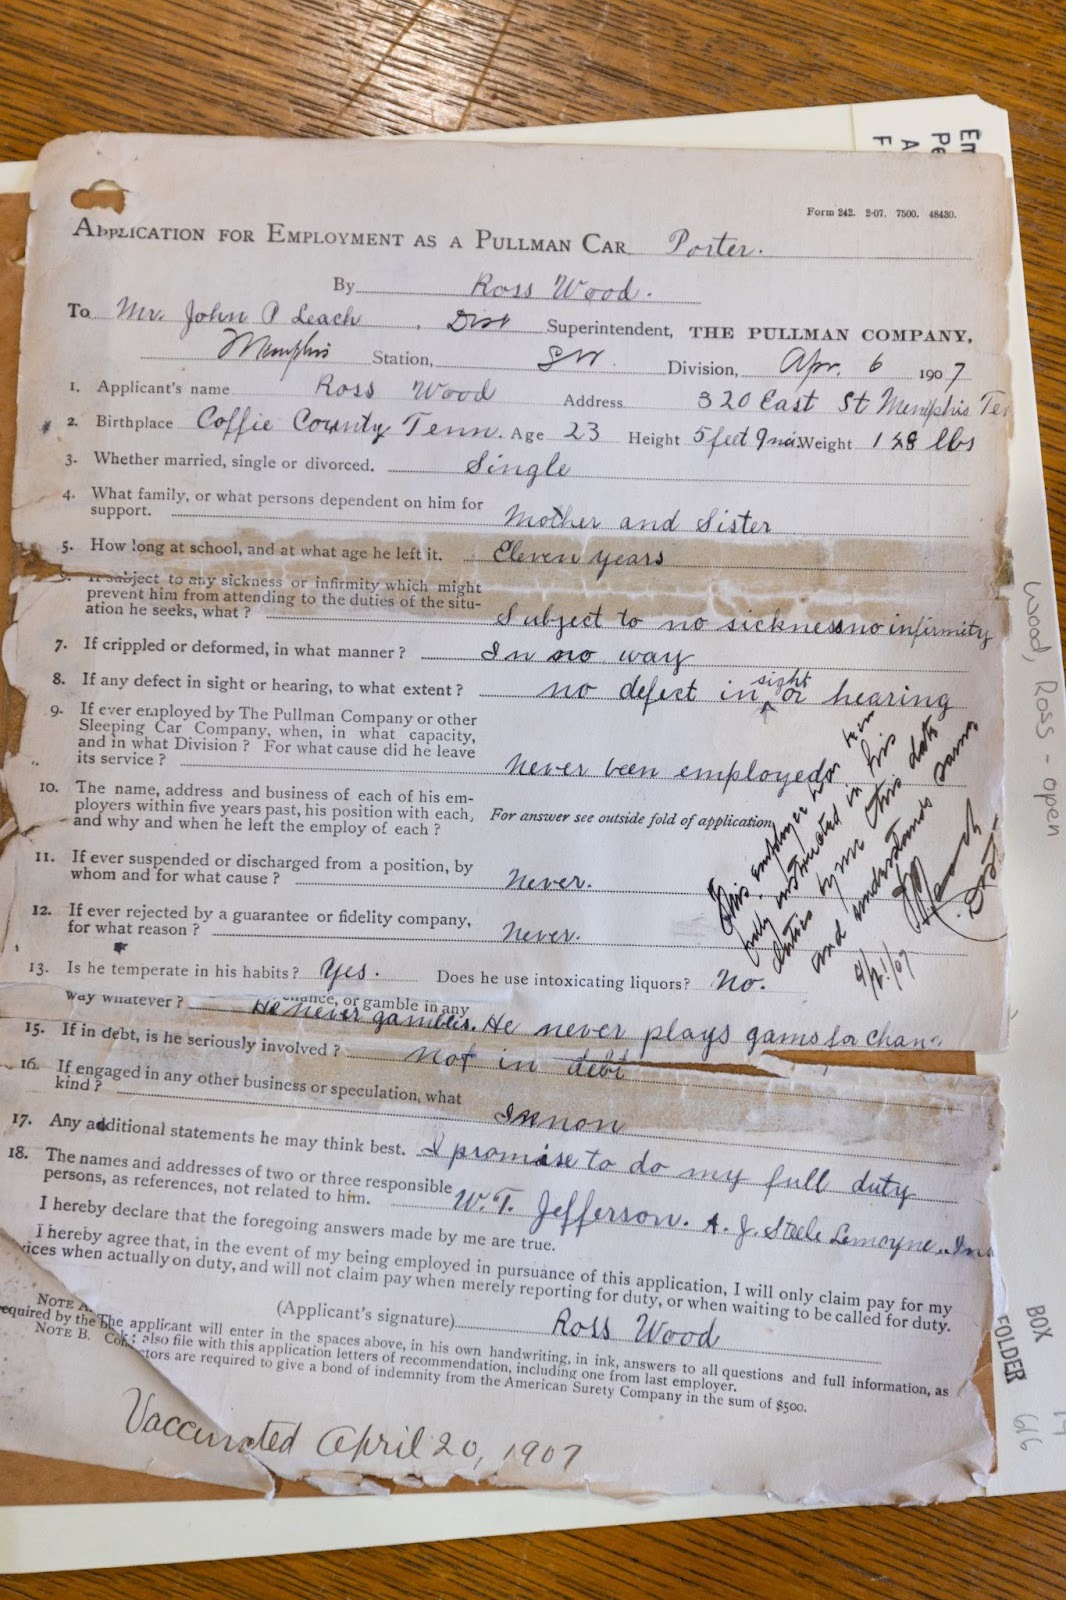 Form 242. 2-07. 7500. 48430.
APPLICATION FOR EMPLOYMENT AS A PULLMAN CAR Porter.
By Ross Wood.
To Mr. John P Leach, Dist Superintendent, THE PULLMAN COMPANY,
Memphis Station, SW. Division, Apr. 6 1907
1. Applicant's name Ross Wood Address 320 East St Memphis Ten
2. Birthplace Coffie County Tenn. Age 23 Height 5 feet 9 ins Weight 128 lbs
3. Whether married, single or divorced. Single
4. What family, or what persons dependent on him for
support. Mother and Sister
5. How long at school, and at what age he left it. Eleven years
If subject to any sickness or infirmity which might
prevent him from attending to the duties of the situ-
ation he seeks, what? Subject to no sickness no infirmity
7. If crippled or deformed, in what manner? In no way
8. If any defect in sight or hearing, to what extent? no defect in sight or hearing
9. If ever employed by The Pullman Company or other
Sleeping Car Company, when, in what capacity,
and in what Division? For what cause did he leave
its service? Never been employed
10. The name, address and business of each of his em-
ployers within five years past, his position with each,
and why and when he left the employ of each? For answer see outside fold of application
11. If ever suspended or discharged from a position, by
whom and for what cause? Never.
12. If ever rejected by a guarantee or fidelity company,
for what reason? Never.
This employee has been
fully instructed in his
duties by me this date
and understands same
4/21/07
Leach
Dist
13. Is he temperate in his habits? Yes. Does he use intoxicating liquors? No.
chance, or gamble in any
way whatever? He never gambles. He never plays gams for chan
15. If in debt, is he seriously involved? not in debt
16. If engaged in any other business or speculation, what
kind? In non
17. Any additional statements he may think best. I promise to do my full duty
18. The names and addresses of two or three responsible
persons, as references, not related to him. W. T. Jefferson. A. J. Steele Lemoyne. Ins
I hereby declare that the foregoing answers made by me are true.
I hereby agree that, in the event of my being employed in pursuance of this application, I will only claim pay for my
vices when actually on duty, and will not claim pay when merely reporting for duty, or when waiting to be called for duty.
(Applicant's signature) Ross Wood
NOTE A. The applicant will enter in the spaces above, in his own handwriting, in ink, answers to all questions and full information, as
equired by the ; also file with this application letters of recommendation, including one from last employer.
NOTE B. Conductors are required to give a bond of indemnity from the American Surety Company in the sum of $500.
Vaccinated April 20, 1907
Wood, Ross - open
BOX
FOLDER 616